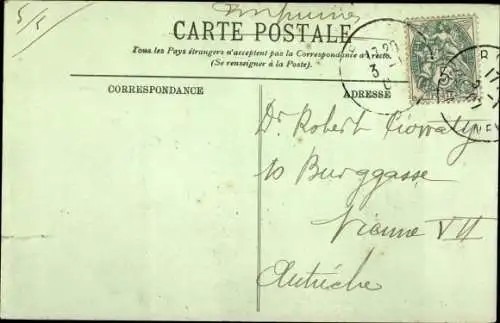 5/5
Imprimés
CARTE POSTALE
Tous les Pays étrangers n'acceptent pas la Correspondance au recto.
(Se renseigner à la Poste).
CORRESPONDANCE
ADRESSE
Dr Robert
10 Burggasse
Vienne VII
Autriche